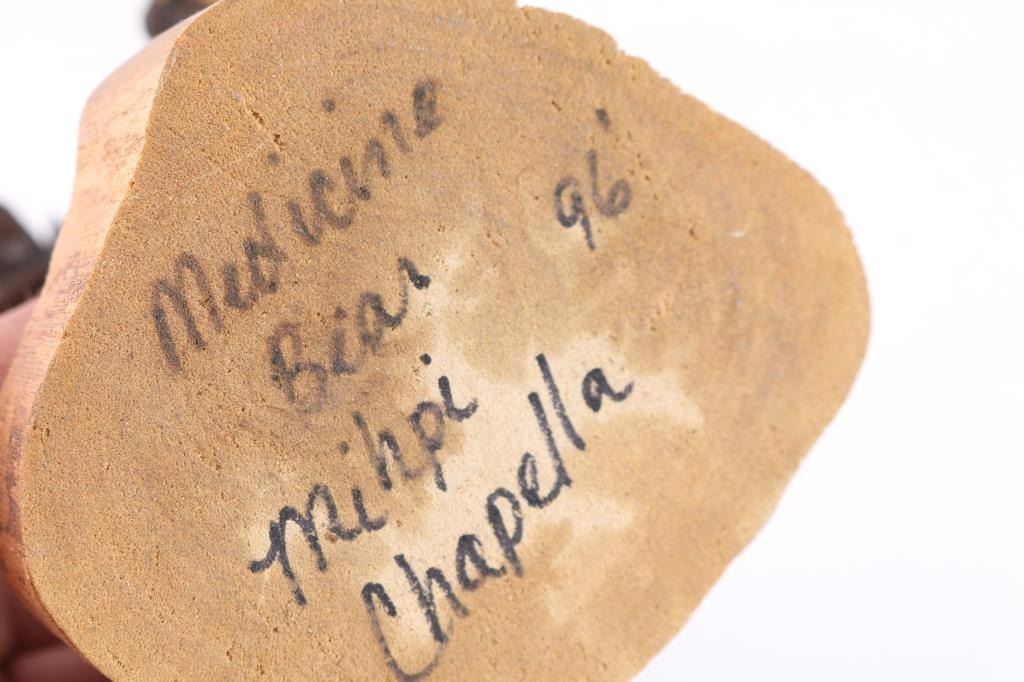 Medicine
Bear 96'
Mihpi
Chapella